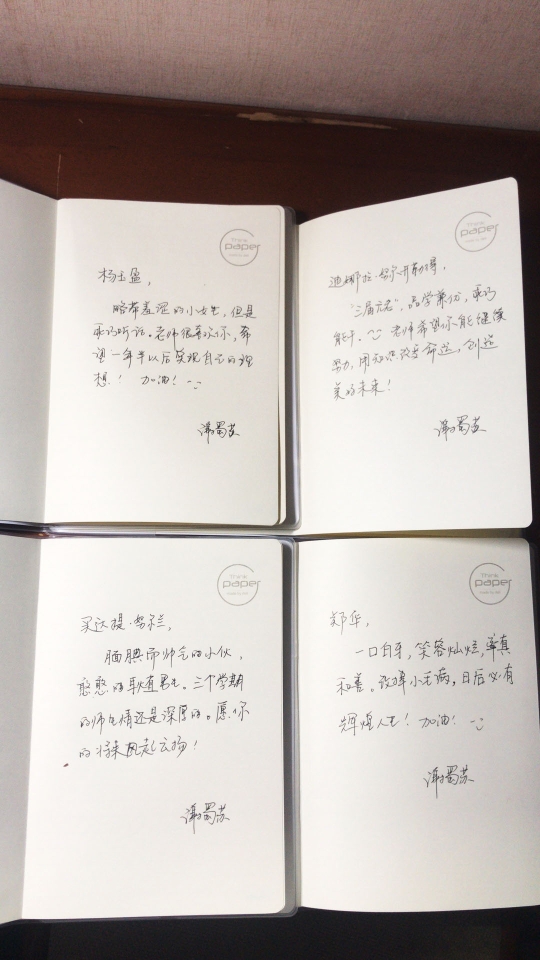 Think
paper
杨玉盈,
略带羞涩的小女生,但是
乖巧听话。老师很喜欢你,希
望一年半以后实现自己的理
想! 加油!
谭蜀苏
Think
paper
迪娜拉·努尔开勒得,
"三届元老",品学兼优,乖巧
能干。老师希望你能继续
努力,用知识改变命运,创造
美好未来!
谭蜀苏
Think
paper
买达提·努尔兰,
腼腆而帅气的小伙,
憨憨的耿直男生。三个学期
的师生情还是深厚的。愿你
的将来风起云扬!
谭蜀苏
Think
paper
郑华,
一口白牙,笑容灿烂,率真
和善。改掉小毛病,日后必有
辉煌人生! 加油!
谭蜀苏